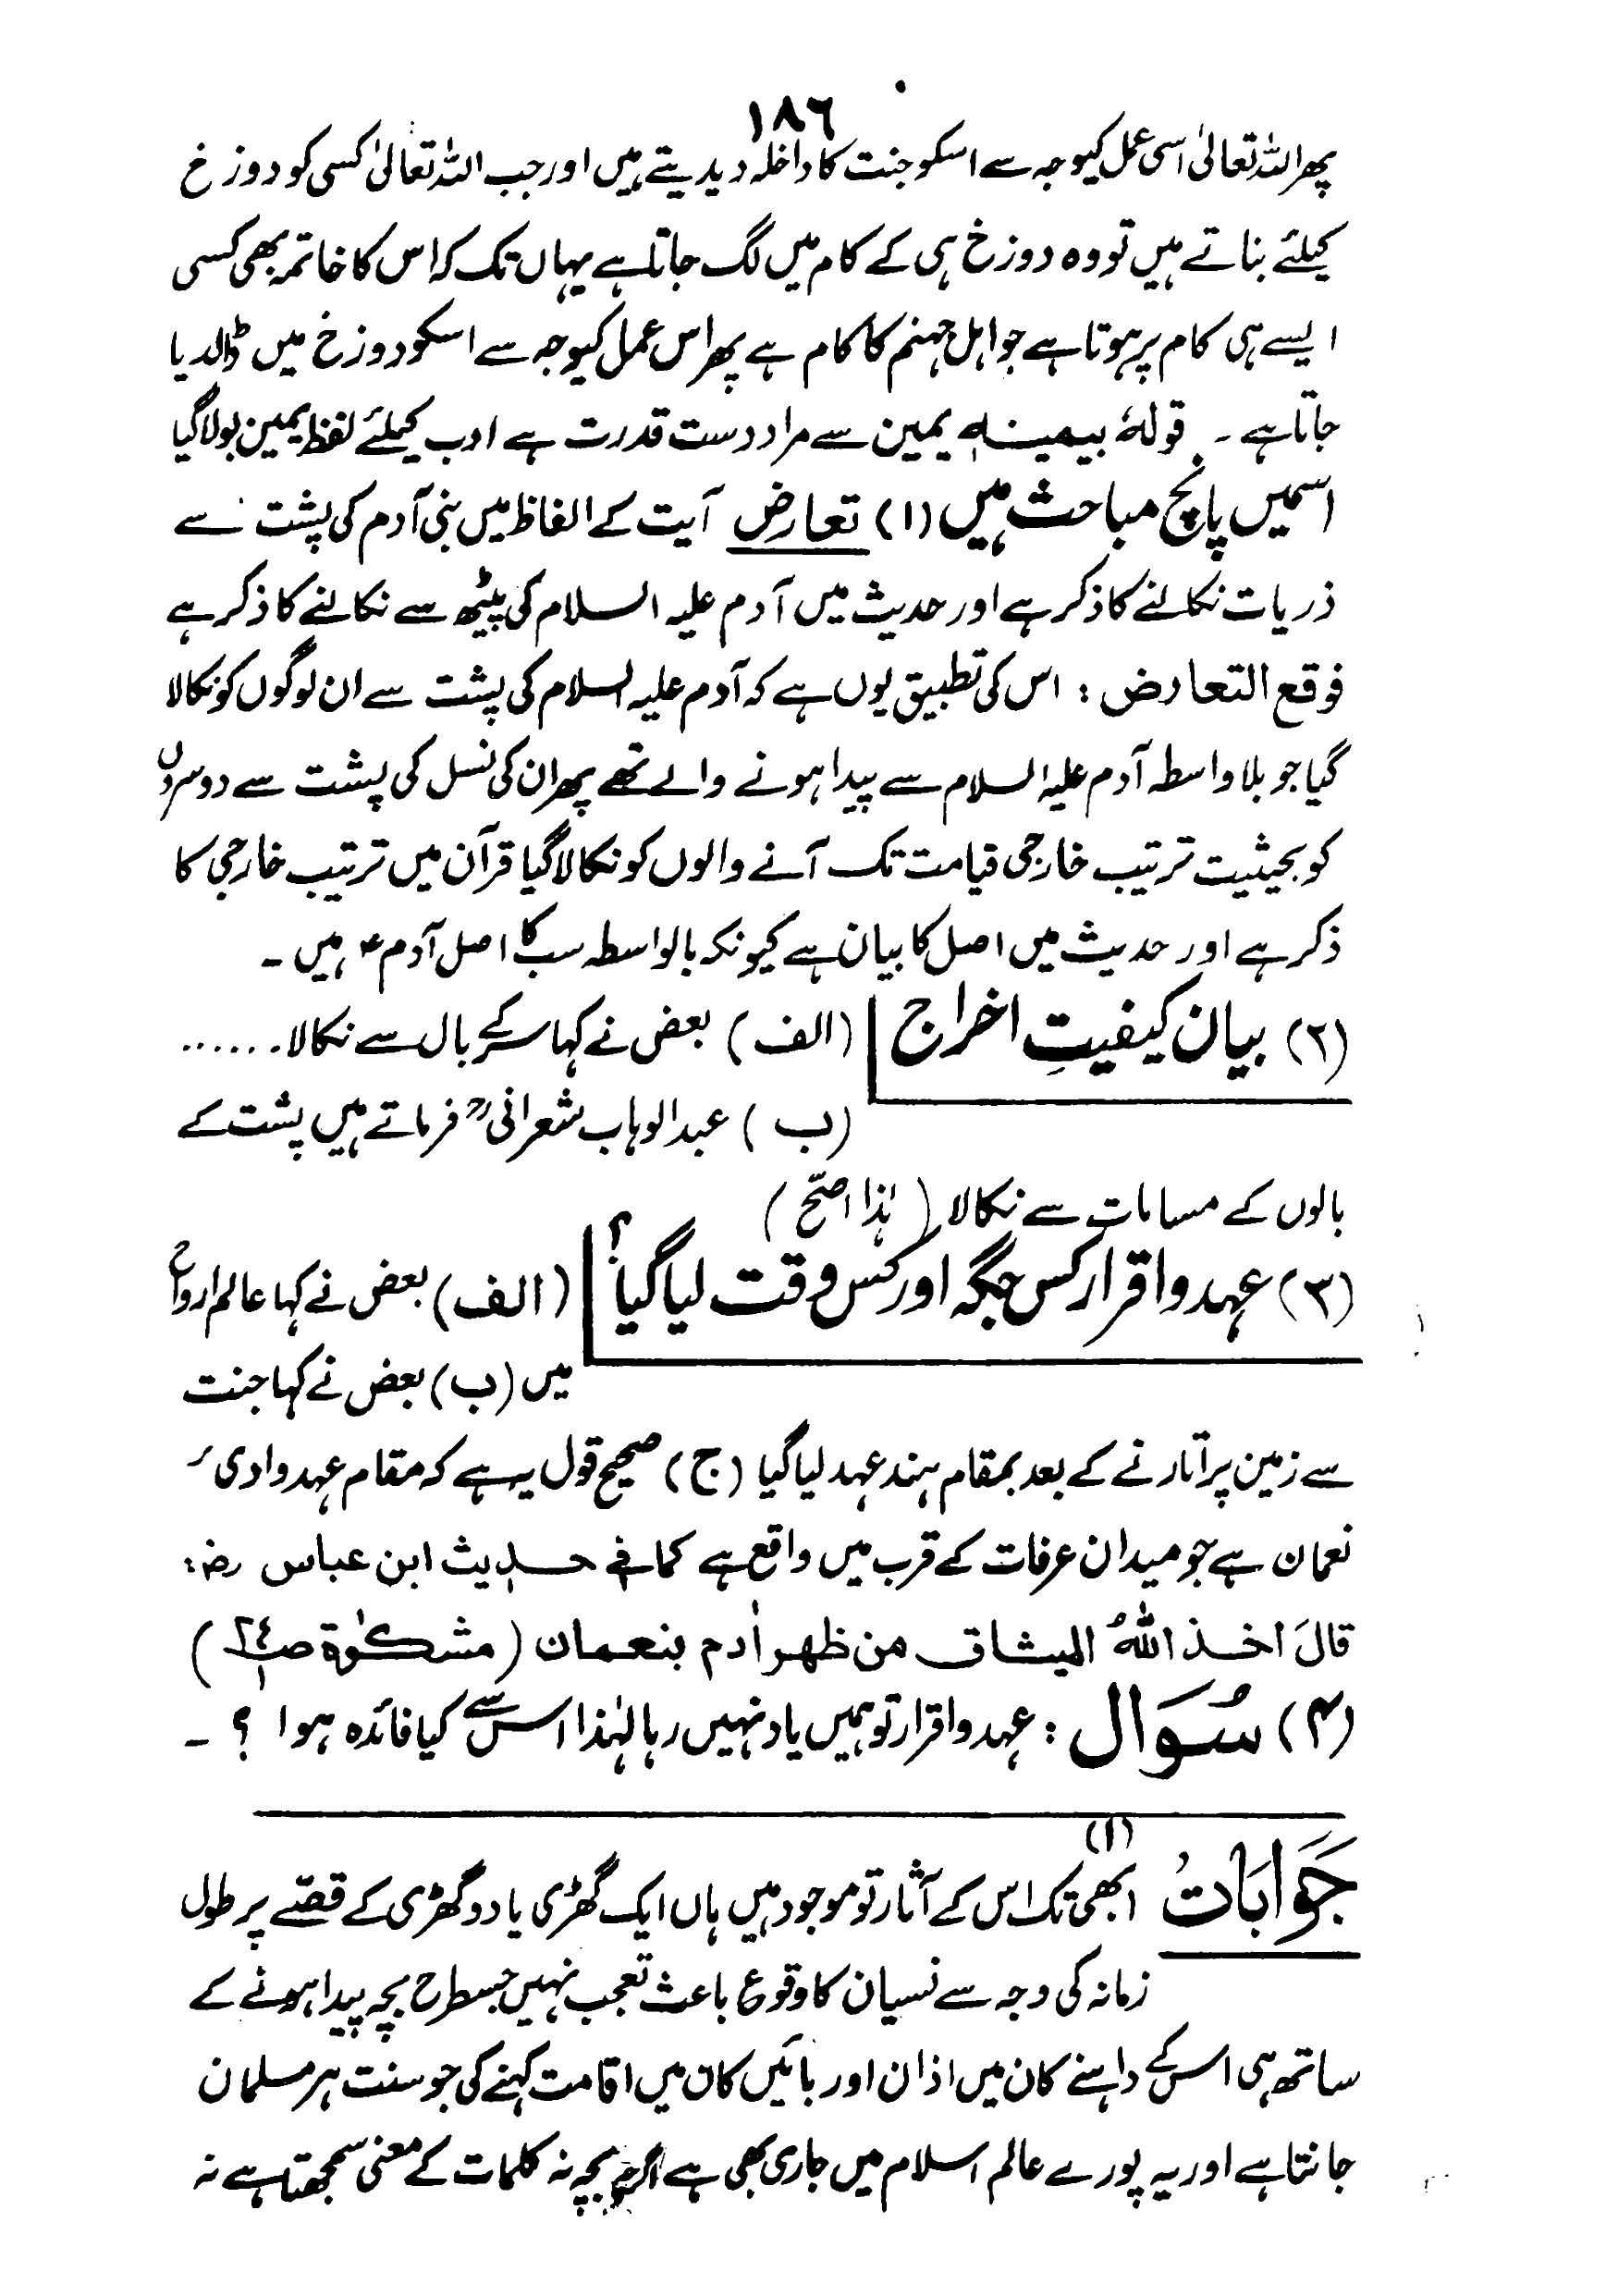 ۱۸۶
پھر اللہ تعالیٰ اسی عمل کیوجہ سے اسکو جنت کا داخلہ دیدیتے ہیں اور جب اللہ تعالیٰ کسی کو دوزخ
کیلئے بناتے ہیں تو وہ دوزخ ہی کے کام میں لگ جاتا ہے یہاں تک کہ اس کا خاتمہ بھی کسی
ایسے ہی کام پر ہوتا ہے جو اہل جہنم کا کام ہے پھر اس عمل کیوجہ سے اسکو دوزخ میں ڈالدیا
جاتا ہے ۔ قولہٗ بیمینہٖ یمین سے مراد دست قدرت ہے ادب کیلئے لفظ یمین بولا گیا
اسمیں پانچ مباحث ہیں (۱) تعارض آیت کے الفاظ میں بنی آدم کی پشت سے
ذریات نکالنے کا ذکر ہے اور حدیث میں آدم علیہ السلام کی پیٹھ سے نکالنے کا ذکر ہے
فوقع التعارض : اس کی تطبیق یوں ہے کہ آدم علیہ السلام کی پشت سے ان لوگوں کو نکالا
گیا جو بلا واسطہ آدم علیہ السلام سے پیدا ہونے والے تھے پھر ان کی نسل کی پشت سے دوسروں
کو بحیثیت ترتیب خارجی قیامت تک آنے والوں کو نکالا گیا قرآن میں ترتیب خارجی کا
ذکر ہے اور حدیث میں اصل کا بیان ہے کیونکہ بالواسطہ سب کا اصل آدم ؑ ہیں ۔
(۲) بیان کیفیتِ اخراج (الف) بعض نے کہا سر کے بال سے نکالا ......
(ب) عبدالوہاب شعرانی ؒ فرماتے ہیں پشت کے
بالوں کے مسامات سے نکالا (ہٰذا اصحّ)
(۳) عہد و اقرار کس جگہ اور کس وقت لیا گیا ؟ (الف) بعض نے کہا عالم ارواح
میں (ب) بعض نے کہا جنت
سے زمین پر اتارنے کے بعد بمقام ہند عہد لیا گیا (ج) صحیح قول یہ ہے کہ مقام عہد وادیٔ
نعمان ہے جو میدان عرفات کے قرب میں واقع ہے کما فی حدیث ابن عباس رض :
قالَ اخذ اللہُ المیثاق من ظھر اٰدم بنعمان (مشکوٰۃ ص ۲۴/۱)
(۴) سُوَال : عہد و اقرار تو ہمیں یاد نہیں رہا لہٰذا اس سے کیا فائدہ ہوا ؟ ۔
جَوَابَاتُ (۱) ابھی تک اس کے آثار تو موجود ہیں ہاں ایک گھڑی یا دو گھڑی کے قصّے پر طول
زمانہ کی وجہ سے نسیان کا وقوع باعث تعجب نہیں جسطرح بچہ پیدا ہونے کے
ساتھ ہی اس کے داہنے کان میں اذان اور بائیں کان میں اقامت کہنے کی جو سنت ہر مسلمان
جانتا ہے اور یہ پورے عالم اسلام میں جاری بھی ہے اگرچہ بچہ نہ کلمات کے معنی سمجھتا ہے نہ